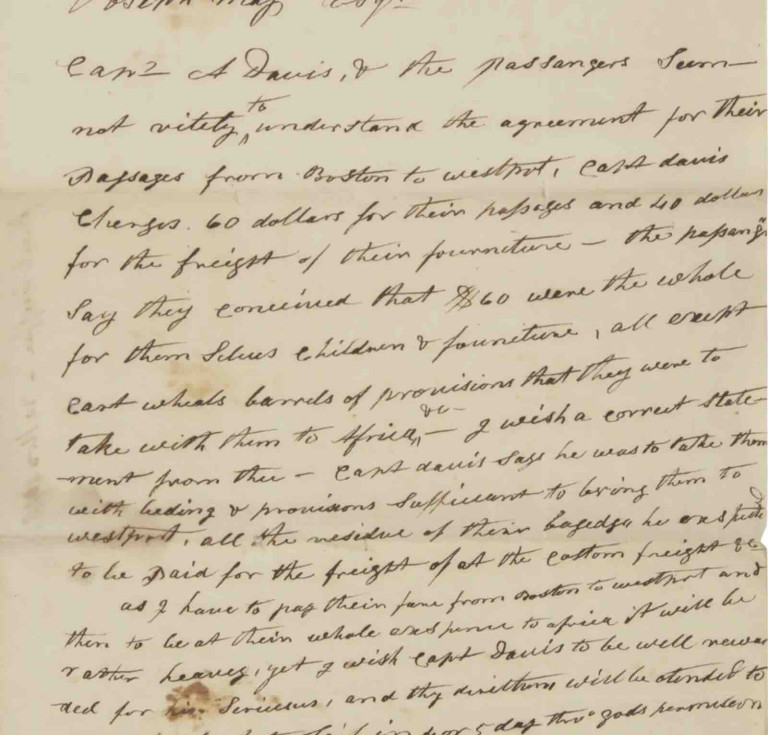 Joseph May Esqr
Capn A Davis, & the passangers Seem
not vitely to understand the agreement for their
Passages from Boston to westport, Capt davis
Charges 60 dollars for their passages and 40 dollars
for the freight of their fourniture – the passang
Say they conceived that $60 were the whole
for them Selves Children & founiture, all except
Cart wheals barrels of provisions that they were to
take with them to Africa, &c – I wish a correct State
ment from thee – Capt davis Says he was to take them
with beding & provisions Sufficiant to bring them to
westport, all the residue of their bagedge he
to be paid for the freight of at the Costom freight &c
as I have to pay their fare from Boston to westport and
then to be at their whole to africa it will be
rather heavey, yet I wish Capt Davis to be well rewar
ded for his Serviesus, and thy will be atended to
in 4 or 5 day gods permission